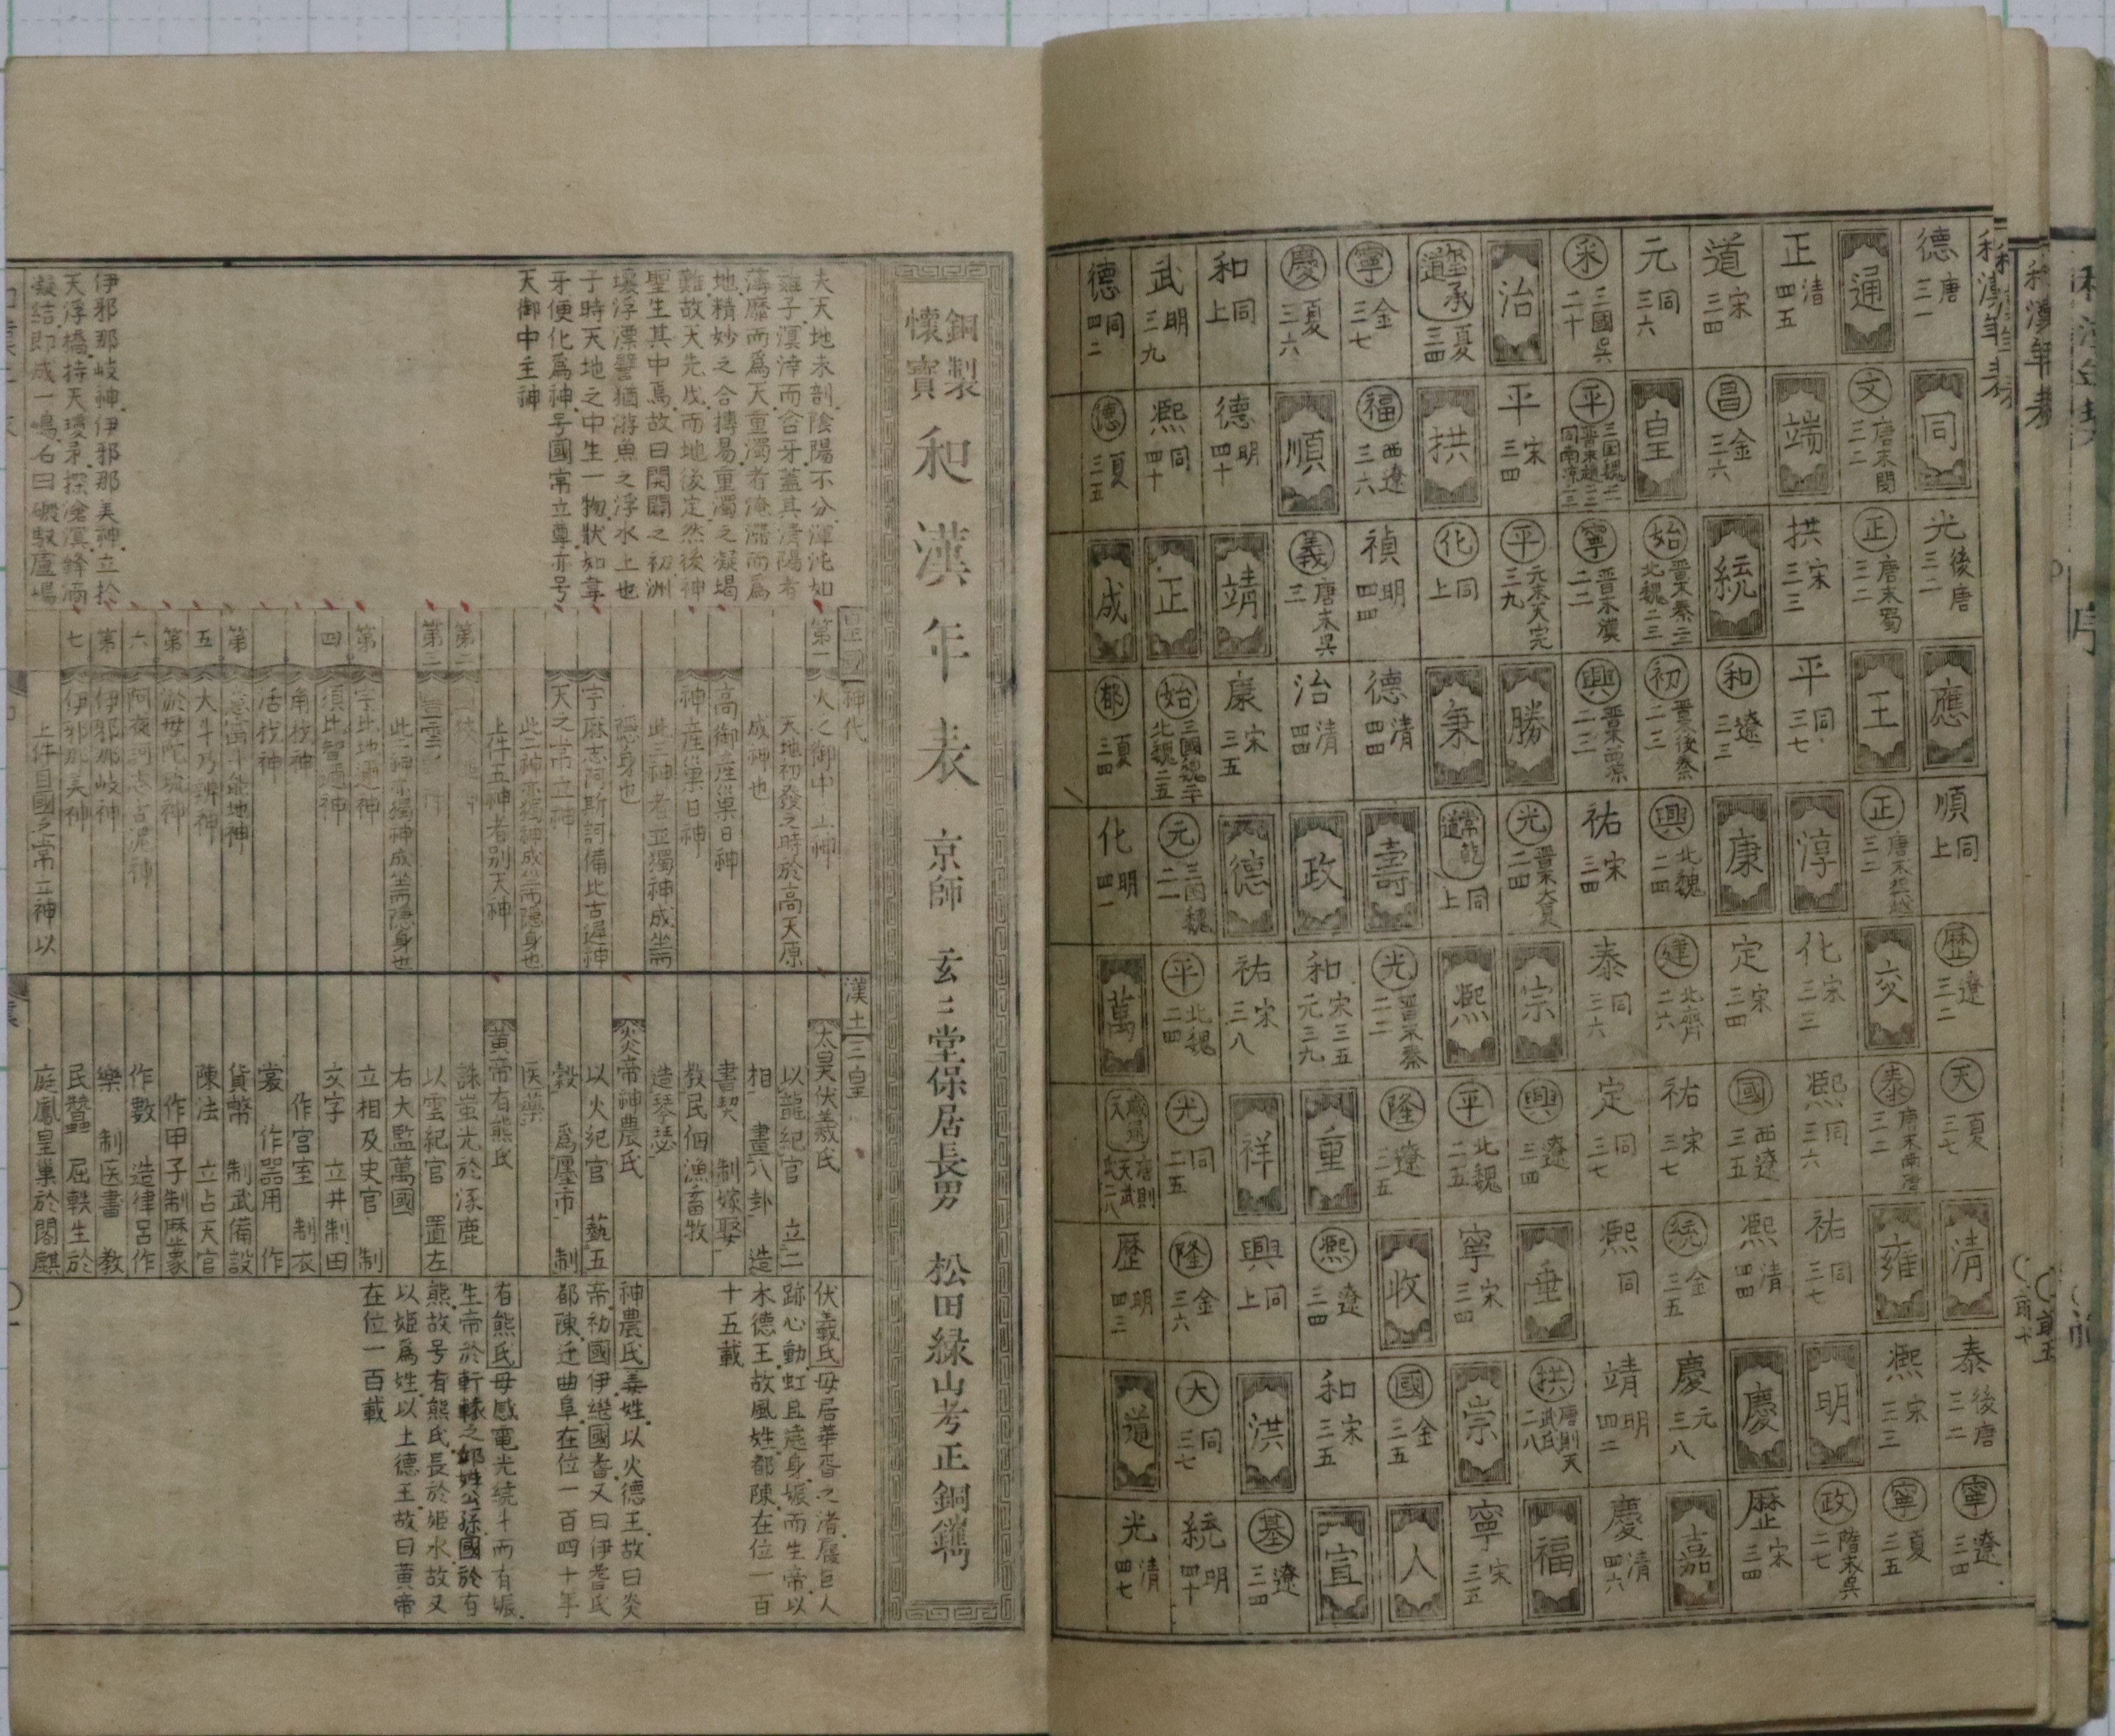 和漢年表
德 唐三一
同
光 後唐三二
應
順 同上
歴 遼三二
天 夏三七
清
泰 後唐三二
寧 遼三四
通
文 唐末閩三二
正 唐末蜀三二
王
正
交
泰 唐末南唐三二
雍
熙 宋三三
寧 夏三五
正 清四五
端
拱 宋三三
平 同三七
淳
化 宋三三
熙 同三六
祐 同三七
明
政 隋末呉二七
道 宋三四
昌 金三六
統
和 遼三三
康
定 宋三四
國 西遼三五
熙 清四四
慶
歴 宋三四
元 同三六
皇
始 晋末秦二二 北魏二三
初 晋末後秦二三
興 北魏二四
建 北齊二六
祐 宋三七
統 金三五
慶 元三八
嘉
禾 三國呉二十
平
寧 晋末漢二二
興
祐 宋三四
泰 同三六
定 同三七
熙 同
靖 明四二
慶 清四六
治
平 宋三四
平 元末天完三九
勝
光 晋末大夏二四
宗
興 遼三四
垂
拱 唐則天武氏二八
福
承道 夏三四
拱
化 同上
秉
常乾道 同上
熙
平 北魏二五
寧 宋三四
崇
寧 宋三五
寧 金三七
福 西遼三六
禎 明四四
德 清四四
壽
光 晋末秦二二
隆 遼三五
收
國 金三五
人
慶 夏三六
順
義 唐末呉三一
治 清四四
政
和 宋三五 元三九
重
熙 遼三四
和 宋三五
宣
和 同上
德 明四十
靖
康 宋三五
德
祐 宋三八
祥
興 同上
洪
基 遼三四
武 明三九
熙 同四十
正
始 三國魏二十 北魏二五
元 三國魏二一
平 北魏二四
光 同二五
隆 金三六
大 同三七
統 明四十
德 同四二
德 夏三五
成
都 夏三四
化 明四一
萬
歴 明四三
道
光 清四七
銅製
懷寶
和漢年表 京師 玄々堂保居長男 松田緑山考正銅鐫
夫天地未剖陰陽不分渾沌如
雞子溟涬而含牙蓋其清陽者
薄靡而爲天重濁者淹滯而爲
地精妙之合摶易重濁之凝堨
難故天先成而地後定然後神
聖生其中焉故曰開闢之初洲
壤浮漂譬猶游魚之浮水上也
于時天地之中生一物狀如葦
牙便化爲神号國常立尊亦号
天御中主神
伊邪那岐神伊邪那美神立於
天浮橋持天瓊矛探滄溟鋒滴
凝結即成一嶋名曰磤馭盧嶋
皇國 神代
第一 天之御中主神
天地初發之時於高天原
成神也
高御産巢日神
神産巢日神
此三神者並獨神成坐而
隱身也
宇麻志阿斯訶備比古遲神
天之常立神
此二神亦獨神成坐而隱身也
上件五神者別天神
第二
第三
此二神亦獨神成坐而隱身也
第四 宇比地邇神
須比智邇神
角杙神
活杙神
第五 意富斗能地神
大斗乃辨神
第六 於母陀琉神
阿夜訶志古泥神
第七 伊邪那岐神
伊邪那美神
上件自國之常立神以
漢土 三皇
太昊伏羲氏
以龍紀官 立二
相 畫八卦 造
書契 制嫁娶
教民佃漁畜牧
造琴瑟
炎帝神農氏
以火紀官 藝五
穀 爲廛市 制
医藥
黄帝有熊氏
誅蚩尤於涿鹿
以雲紀官 置左
右大監萬國
立相及史官 制
文字 立井制田
作宮室 制衣
裳 作器用 作
貨幣 制武備設
陳法 立占天官
作甲子制暦象
作數 造律呂作
樂 制医書 教
民蠶 屈軼生於
庭鳳皇巢於閣麒
伏羲氏母居華胥之渚履巨人
跡心動虹且遶身娠而生帝以
木德王故風姓都陳在位一百
十五載
神農氏姜姓以火德王故曰炎
帝初國伊繼國耆又曰伊耆氏
都陳迁曲阜在位一百四十年
有熊氏母感電光繞斗而有娠
生帝於軒轅之邱姓公孫國於有
熊故号有熊氏長於姫水故又
以姫爲姓以土德王故曰黄帝
在位一百載